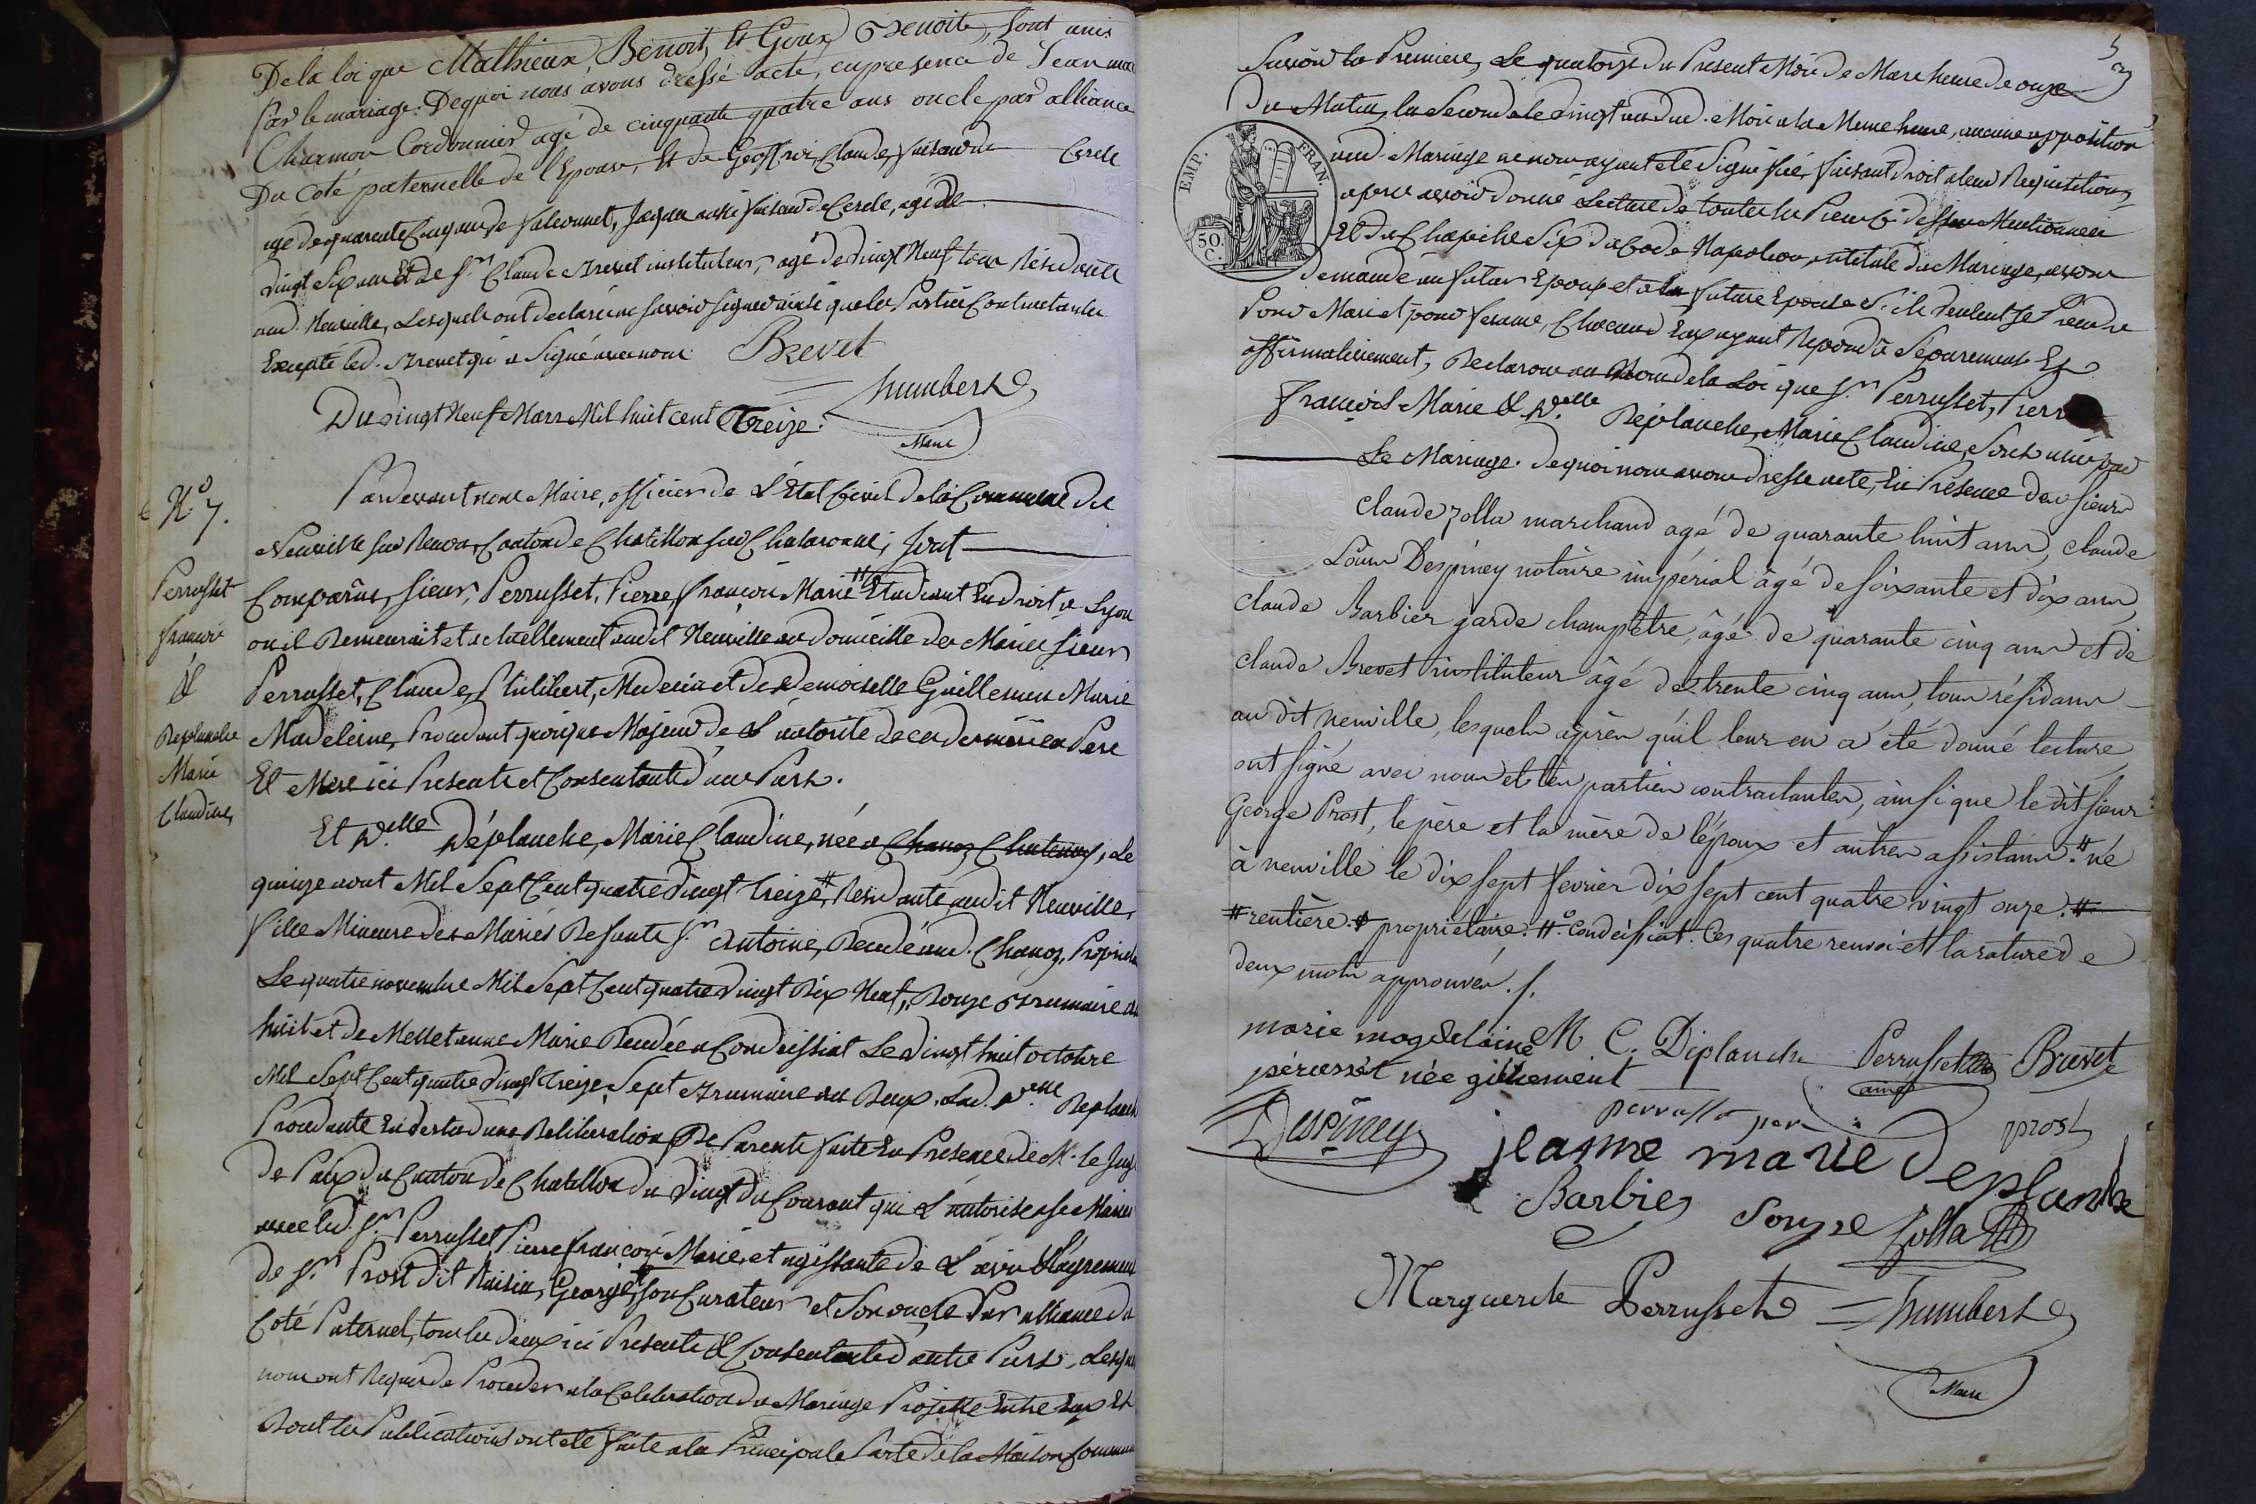 De la loi que Mathieux Benoit, Et Goux Benoite, sont unis
par le mariage. Dequoi nous avons dressé acte, en presence de Jean
Charmon Cordonnier agé de cinquante quatre ans oncle par alliance
Du coté paternelle de l'Epouse, Et de Geoffroi, Claude, faiseur de Cercle
agé de quarante Cinq ans, de Jacques aussi faiseur de Cercle, agé de
vingt Six ans Et de Sr. Claude Brevet instituteur, agé de vingt Neuf tous Residants
aud. Neuville, Lesquels ont declaré ne savoir signer ainsi que les Parties Contractantes
Excepté led. Brevet qui a Signé avec nous Brevet
humbert
Du vingt Neuf Mars Mil huit cent Treize.
Maire
No 7.
Perrusset
francois
&
Deplanche
Marie
Claudine,
Pardevant nous Maire, officier de L'Etat Civil de la Commune de
Neuville sur Renon, Canton de Chatillon sur Chalaronne, sont
Comparus, sieur, Perrusset, Pierre, francois Marie # Etudiant En droit a Lyon
ou il Demeurait et actuellement audit Neuville au domicille des Mariés sieur
Perrusset, Claude, Philibert, Medecin et de Demoiselle Guillemin Marie
Madeleine, Procedant quoique Majeur de L'autorité de ces derniers ses Pere
Et Mere ici Presents et Consentants d'une Part.
Et D.elle Déplanche, Marie Claudine, née a Chanoz Chatenay, Le
quinze aout Mil Sept Cent quatre vingt treize # Residante audit Neuville,
fille Mineure des Mariés Defunts Sr. Antoine, Decedé aud. Chanoz,
Le quatre novembre Mil Sept Cent quatre vingt Dix Neuf, Douze Brumaire an
huit et de Mellet anne Marie Decedée a Condeissiat Le vingt huit octobre
Mil Sept Cent quatre vingt treize Sept Brumaire an Deux. Lad. D.elle
Procedante En vertu d'une Deliberation De Parents faite En Presence de M. le Juge
de Paix du Canton de Chatillon du vingt du Courant qui L'autorise a se Marier
avec led. Sr. Perrusset Pierre francois Marie, et agissante de L'avis & l'agrement
de Sr. Prost dit Raisin, George, # son Curateur et Son oncle Par alliance du
Coté Paternel, tous les deux ici Presents & Consentants d'autre Part, Lesquels
nous ont Requis de Proceder a la Celebration du Mariage Projetté Entre Eux Et
Dont les Publications ont été faites a la Principale Porte de la Maison Commune
5
Savoir la Premiere, Le quatorze du Present Mois de Mars heure de onze
Du Matin, la Seconde le vingt un dud. Mois a la Meme heure, aucune opposition
aud. Mariage ne nous ayant été Signifiée, faisant droit a leur Requisition,
apres avoir donné Lecture de toutes les Pieces Ci dessus Mentionnées
Et du Chapitre Six du Code Napoleon, intitulé du Mariage, avons
Demandé au futur Epoux et a la future Epouse S'ils veulent se Prendre
Pour Mari et pour femme, Chacun d'Eux ayant Repondu Separement Et
affirmativement, Declarons au Nom de la Loi que Sr. Perrusset, Pierre
François Marie & D.elle Déplanche, Marie Claudine, Sont unis par
Le Mariage. De quoi nous avons dressé acte, En Présence des Sieurs
EMP. FRAN.
50.
C.
Claude Zolla marchand agé de quarante huit ans, claude
Louis Despiney notaire impérial âgé de soixante et dix ans,
claude Barbier garde champêtre, âgé de quarante cinq ans et de
claude Brevet instituteur âgé de trente cinq ans, tous résidans
au dit neuville, lesquels après qu'il leur en a été donné lecture
ont signé avec nous et les parties contractantes, ainsi que le dit sieur
George Prost, le père et la mère de l'époux et autres assistans. # né
à neuville le dix sept fevrier dix sept cent quatre vingt onze. #
# rentière. # propriétaire. # o condeissiat. Ces quatre renvoi et la rature de
deux mots approuvés. /.
marie magdelaine M. C. Déplanche Perrusset Brevet
pérusset née gillement ainé
perrusset père prost
Despiney jeanne marie Deplanche
Barbier Zolla
Marguerite Perrusset humbert
Maire